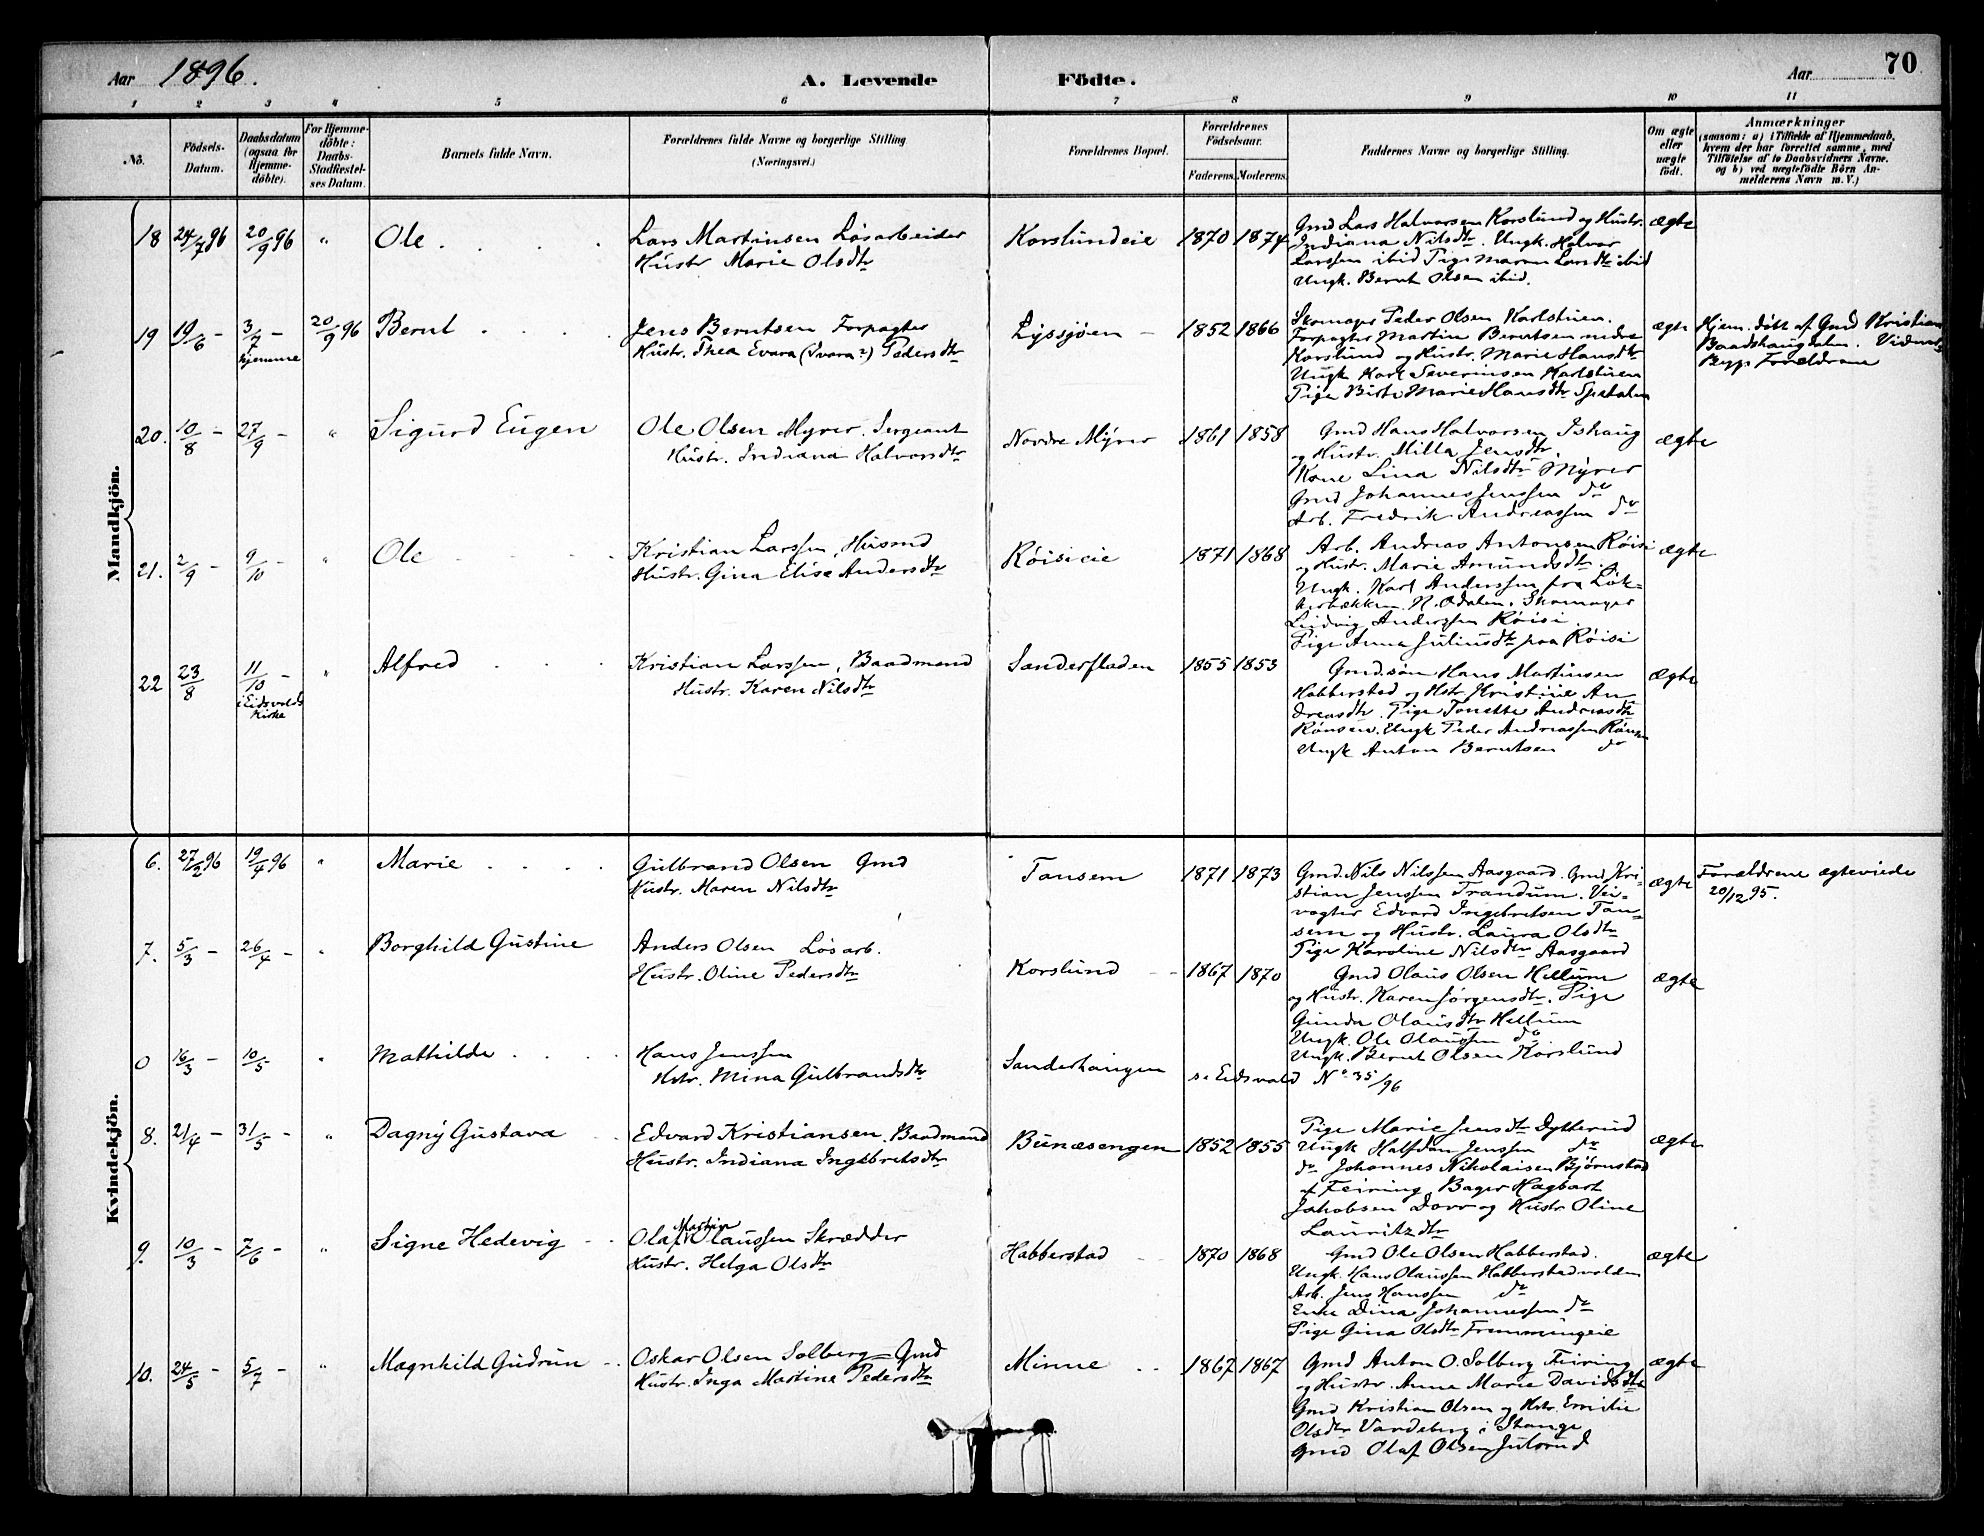 Aar 1896.
A. Levende Födte.
Aar 70
1 2 3 4 5 6 7 8 9 10 11
No.
Födsels-Datum.
Daabsdatum (ogsaa for Hjemme-döbte).
For Hjemme-döbte: Daabs-Stadfæstel-ses Datum.
Barnets fulde Navn.
Forældrenes fulde Navne og borgerlige Stilling (Næringsvei.)
Forældrenes Bopæl.
Forældrenes Födselsaar.
Faderens. Moderens.
Faddernes Navne og borgerlige Stilling.
Om ægte eller uægte födt.
Anmærkninger
(saasom: a) i Tilfælde af Hjemmedaab, hvem der har forrettet samme, med Tilföielse af to Daabsvidners Navne. og b) ved uægtefödte Börn An-melderens Navn m.V.)
Mandkjön.
18 24/7 96 20/9 96 "
Ole
Lars Martinsen Løsarbeider
Hustr Marie Olsdtr
Korslundeie 1870 1874
Gmd Lars Halvorsen Korslund og Hustr.
Indiana Nilsdtr. Ungk. Halvor
Larssen ibid Pige Maren Larsdtr ibid
Ungk. Bernt Olsen ibid.
ægte
19 19/6 - 3/7 - hjemme 20/9 96
Bernt
Jens Berntsen Forpagter
Hustr. Thea Evara (Ivara?) Pedersdtr
Lyssjøen 1852 1866
Skomager Peder Olsen Karlstuen.
Forpagter Martin Berntsen nedre
Korslund og Hustr. Marie Hansdtr
Ungk Karl Severinsen Karlstuen
Pige Birte Marie Hansdtr
ægte
Hjem. döbt af Gmd Kristian
Baadshaugdalen.
Forældrene
20. 10/8 - 27/9 - "
Sigurd Eugen
Ole Olsen Myrer. Sergeant
Hustr. Indiana Halvorsdtr
Nordre Myrer 1861 1858
Gmd Hans Halvorsen Ishaug
og Hustr. Milla Jensdtr.
Kone Lina Nilsdtr Myrer
Gmd Johannes Jenssen do
Arb. Fredrik Andreassen do
ægte
21. 2/9 - 9/10 - "
Ole
Kristian Larssen, Husmd
Hustr. Gina Elise Andersdtr
Røisieie 1871 1868
Arb. Andreas Antonsen Røisi
og Hustr. Marie Amundsdtr.
Ungk. Karl Anderssen fra Løk-
kerbækken N. Odalen. Skomager
Ludvig Anderssen Røisi.
Pige Anna Juliusdtr paa Røisi
ægte
22 23/8 11/10 - i Eidsvolds Kirke "
Alfred
Kristian Larssen, Baadmand
Hustr. Karen Nilsdtr
Sanderfladen 1855 1853
Gmd.søn Hans Martinsen
Habberstad og Hstr. Kristine An-
dreasdtr. Pige Tonette Andreasdtr
Rønsen. Ungk Peder Andreassen Rønsen
Ungk Anton Berntsen do
ægte
Kvindekjön.
6. 27/2 96 19/4 96 "
Marie
Gulbrand Olsen Gmd
Hustr. Maren Nilsdtr
Tønsem 1871 1873
Gmd. Nils Nilssen Aasgaard. Gmd Kri-
stian Jenssen Trandum. Vei-
vogter Edvard Ingebretsen Tøn-
sem og Hustr. Laura Olsdtr
Pige Karoline Nilsdtr Aasgaard
ægte
Forældrene ægteviede
20/12 95.
7. 5/3 - 26/4 - "
Borghild Gustine
Anders Olsen Løsarb.
Hustr. Oline Pedersdtr
Korslund 1867 1870
Gmd Olaus Olsen Hellum
og Hustr. Karen Jørgensdtr. Pige
Gunda Olausdtr Hellum
Ungk. Ole Olaussen do
Ungk. Bernt Olsen Korslund
ægte
0 16/3 - 10/5 "
Mathilde
Hans Jenssen
Hstr. Mina Gulbrandsdtr
Sanderhaugen
se Eidsvold No 35/96
8. 21/4 - 31/5 - "
Dagny Gustava
Edvard Kristiansen. Baadmand
Hustr. Indiana Ingebretsdtr
Bunæsengen 1852 1855
Pige Marie Jensdtr Dytterud
Ungk Halfdan Jenssen do
do Johannes Nikolaisen Bjørnstad
af Feiring Bager Hagbart
Jakobsen og Hustr Oline
Lauritzdtr
ægte
9. 10/3 - 7/6 - "
Signe Hedevig
Olaf Martin Olaussen Skrædder
Hustr. Helga Olsdtr
Habberstad 1870 1868
Gmd Ole Olsen Habberstad.
Ungk. Hans Olaussen Habberstadvolden
Arb. Jens Hanssen do
Enke Dina Johannessen do
Pige Gina Olsdtr
ægte
10. 24/5 - 5/7 - "
Magnhild Gudrun
Oskar Olsen Solberg - Gmd
Hustr. Inga Martine Pedersdtr
Minne 1867 1867
Gmd Anton O. Solberg Feiring
og Hustr. Anna Marie Davidsdtr
Gmd Kristian Olsen og Hstr. Emilie
Olsdtr Vandeberg i Stange
Gmd Olaf Olsen Julsrud
ægte